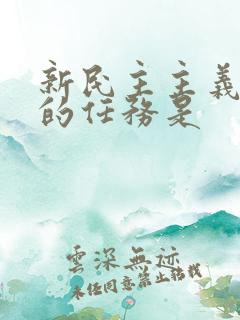 新民主主義
的任務是
雲深無迹
未经同意禁止转载